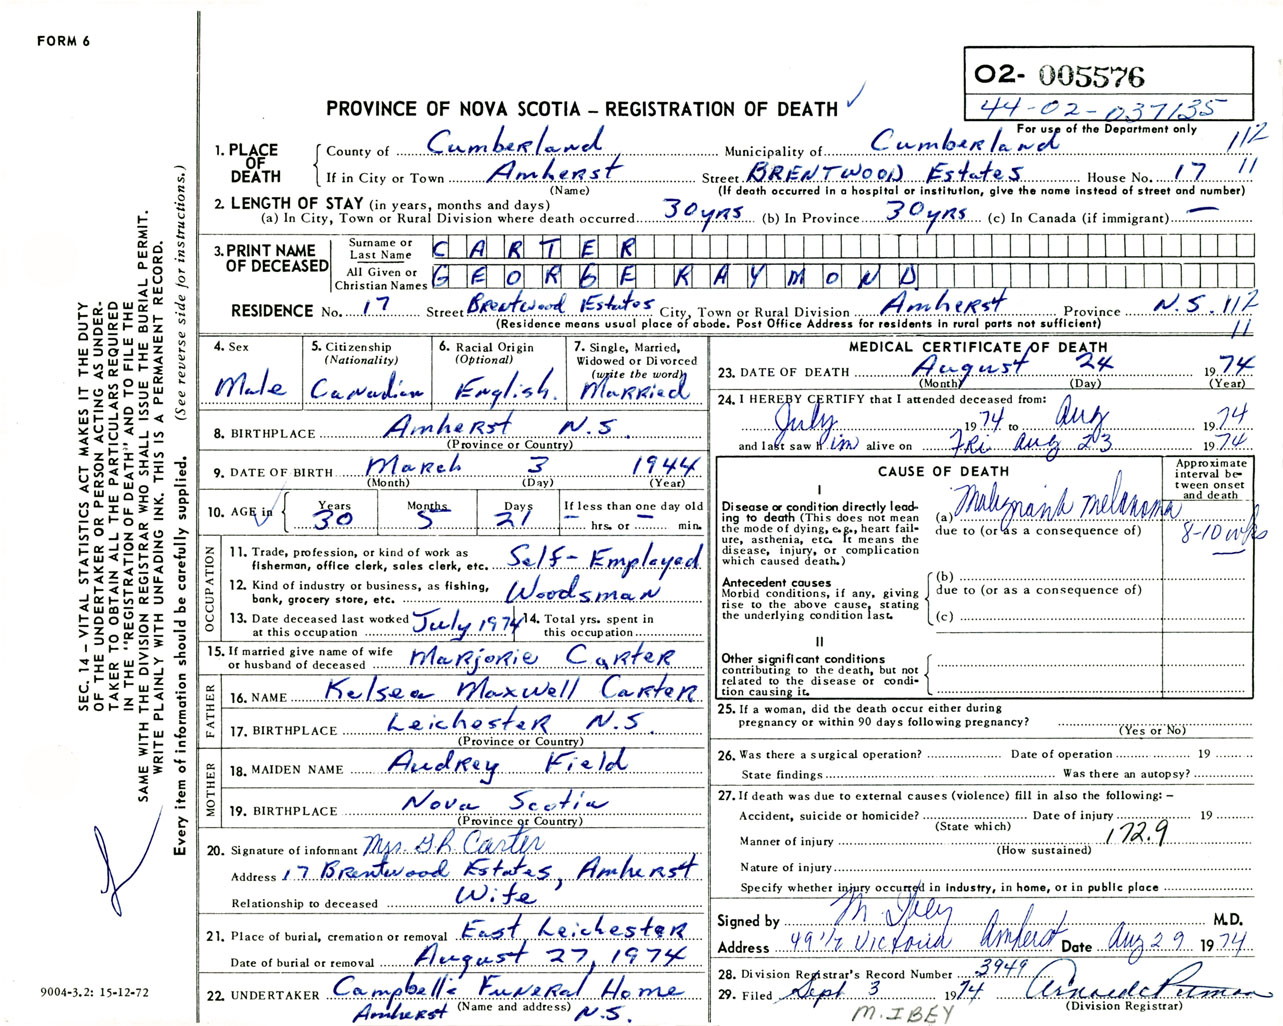 FORM 6
O2- 005576
44-02-037135
For use of the Department only
PROVINCE OF NOVA SCOTIA – REGISTRATION OF DEATH ✓
SEC. 14 – VITAL STATISTICS ACT MAKES IT THE DUTY
OF THE UNDERTAKER OR PERSON ACTING AS UNDER-
TAKER TO OBTAIN ALL THE PARTICULARS REQUIRED
IN THE "REGISTRATION OF DEATH" AND TO FILE THE
SAME WITH THE DIVISION REGISTRAR WHO SHALL ISSUE THE BURIAL PERMIT.
WRITE PLAINLY WITH UNFADING INK. THIS IS A PERMANENT RECORD.
Every item of information should be carefully supplied. (See reverse side for instructions.)
1. PLACE OF DEATH
County of Cumberland Municipality of Cumberland 112
If in City or Town Amherst Street BRENTWOOD Estates House No. 17 11
(Name) (If death occurred in a hospital or institution, give the name instead of street and number)
2. LENGTH OF STAY (in years, months and days)
(a) In City, Town or Rural Division where death occurred 30yrs (b) In Province 30yrs (c) In Canada (if immigrant) —
3. PRINT NAME OF DECEASED
Surname or Last Name CARTER
All Given or Christian Names GEORGE RAYMOND
RESIDENCE No. 17 Street Brentwood Estates City, Town or Rural Division Amherst Province N.S. 112
(Residence means usual place of abode. Post Office Address for residents in rural parts not sufficient) 11
4. Sex
Male
5. Citizenship
(Nationality)
Canadian
6. Racial Origin
(Optional)
English.
7. Single, Married,
Widowed or Divorced
(write the word)
Married
8. BIRTHPLACE Amherst N.S.
(Province or Country)
9. DATE OF BIRTH March 3 1944
(Month) (Day) (Year)
10. AGE in Years Months Days If less than one day old
30 5 21 – hrs. or – min.
OCCUPATION
11. Trade, profession, or kind of work as
fisherman, office clerk, sales clerk, etc. Self-Employed
12. Kind of industry or business, as fishing,
bank, grocery store, etc. Woodsman
13. Date deceased last worked
at this occupation July 1974
14. Total yrs. spent in
this occupation
15. If married give name of wife
or husband of deceased Marjorie Carter
FATHER
16. NAME Kelsea Maxwell Carter
17. BIRTHPLACE Leichester N.S.
(Province or Country)
MOTHER
18. MAIDEN NAME Audrey Field
19. BIRTHPLACE Nova Scotia
(Province or Country)
20. Signature of informant Mrs. G.R. Carter
Address 17 Brentwood Estates, Amherst
Relationship to deceased Wife
21. Place of burial, cremation or removal East Leichester
Date of burial or removal August 27, 1974
22. UNDERTAKER Campbell's Funeral Home
(Name and address)
Amherst N.S.
9004-3.2: 15-12-72
MEDICAL CERTIFICATE OF DEATH
23. DATE OF DEATH August 24 1974
(Month) (Day) (Year)
24. I HEREBY CERTIFY that I attended deceased from:
July 1974 to Aug 1974
and last saw him alive on Fri Aug 23 1974
CAUSE OF DEATH
Approximate
interval be-
tween onset
and death
I
Disease or condition directly lead-
ing to death (This does not mean
the mode of dying, e.g., heart fail-
ure, asthenia, etc. It means the
disease, injury, or complication
which caused death.)
(a) Malignant melanoma
due to (or as a consequence of) 8-10 wks
Antecedent causes
Morbid conditions, if any, giving
rise to the above cause, stating
the underlying condition last.
(b)
due to (or as a consequence of)
(c)
II
Other significant conditions
contributing to the death, but not
related to the disease or condi-
tion causing it.
25. If a woman, did the death occur either during
pregnancy or within 90 days following pregnancy?
(Yes or No)
26. Was there a surgical operation? Date of operation 19
State findings Was there an autopsy?
27. If death was due to external causes (violence) fill in also the following: –
Accident, suicide or homicide? Date of injury 19
(State which)
Manner of injury 172.9
(How sustained)
Nature of injury
Specify whether injury occurred in industry, in home, or in public place
Signed by M Ibey M.D.
Address 49 1/2 Victoria Amherst Date Aug 29 1974
28. Division Registrar's Record Number 3949
29. Filed Sept 3 1974
(Division Registrar)
M. IBEY